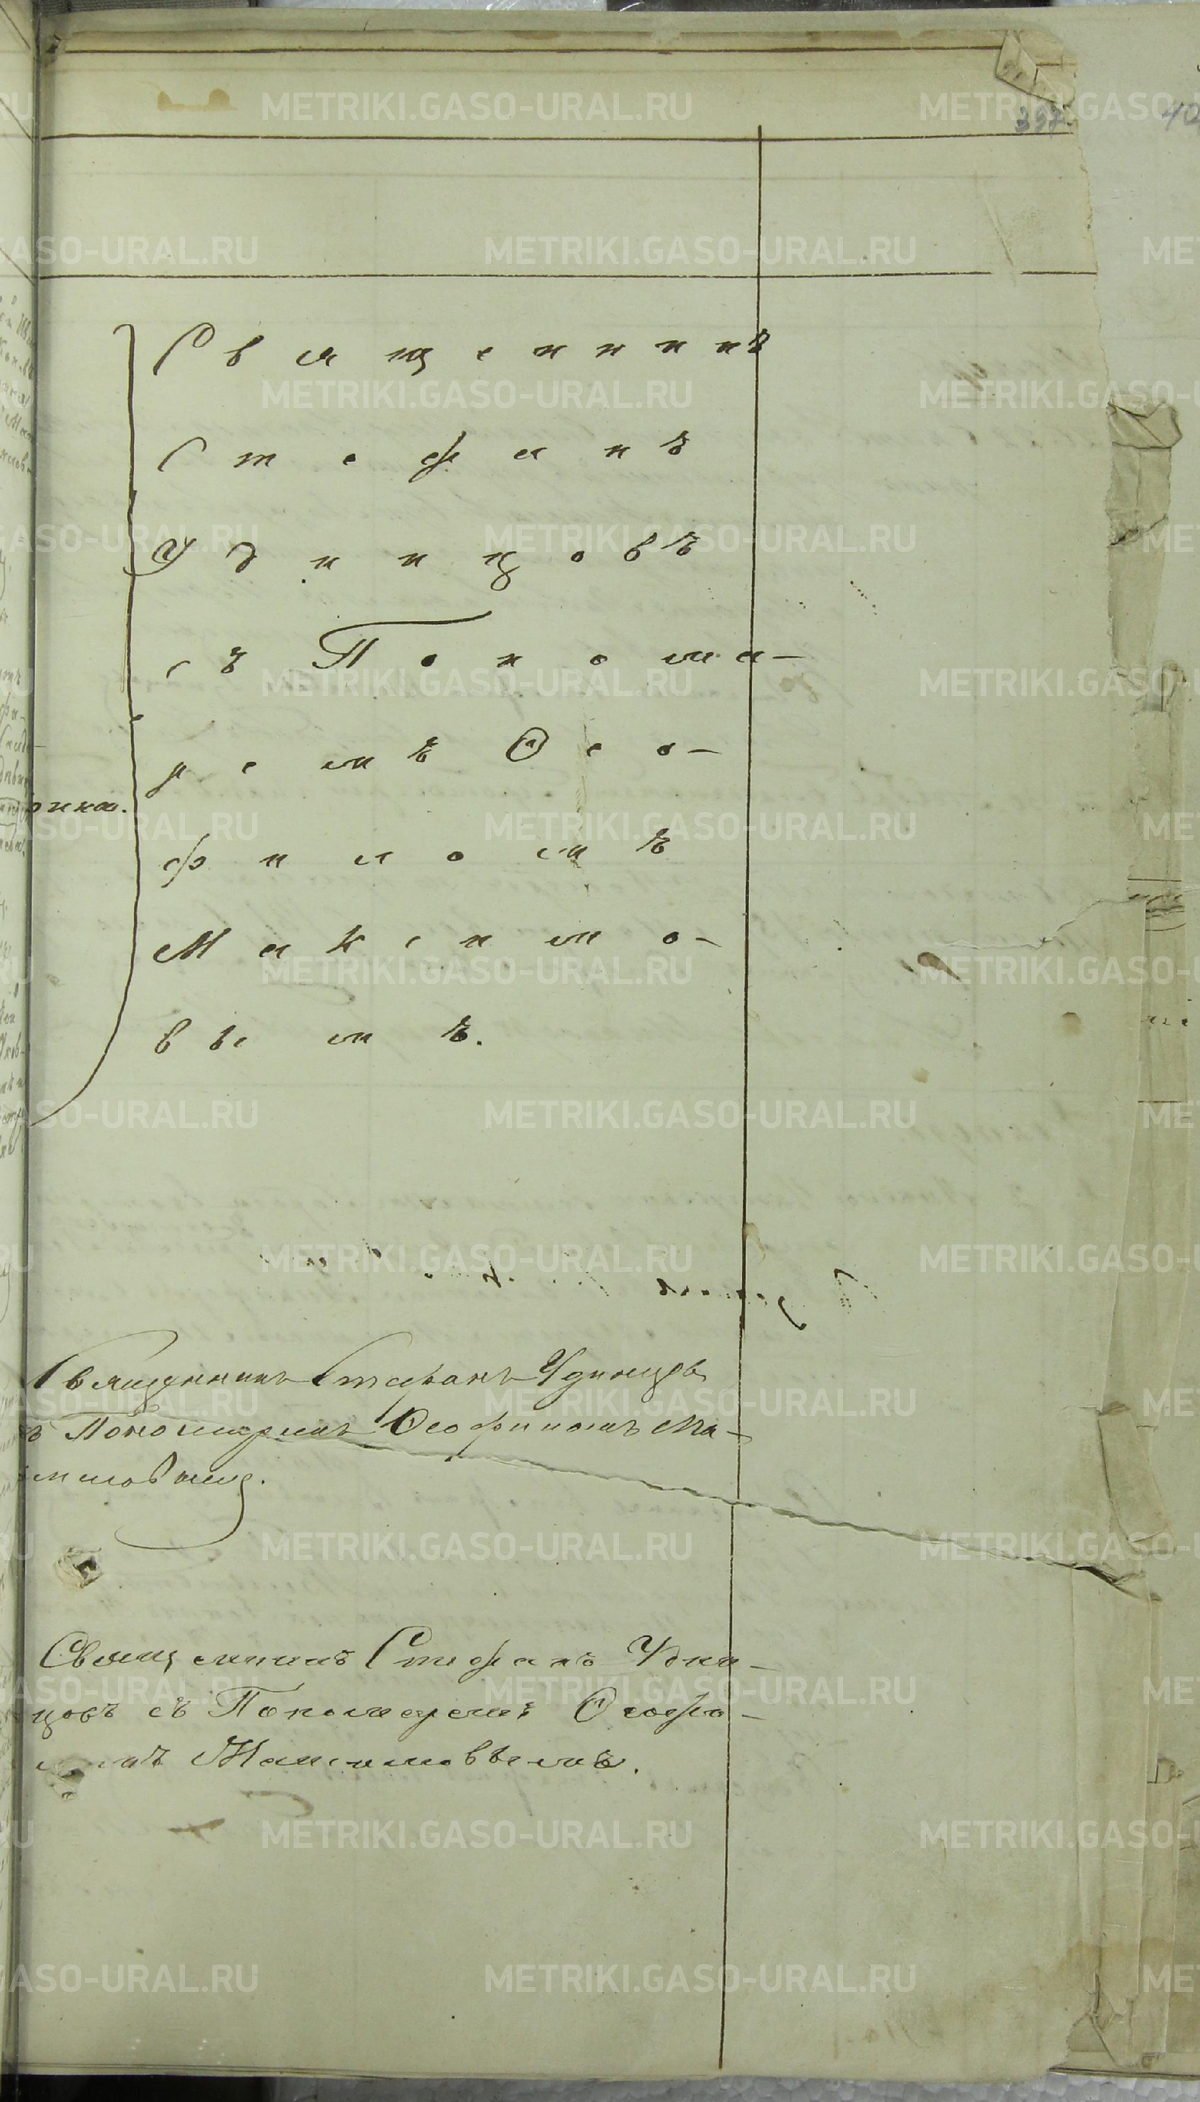 397.
40
Священникъ
Стефанъ
Удинцовъ
съ Понома-
ремъ Ѳео-
филомъ
Максимо-
вымъ.
Священникъ Стефанъ Удинцовъ
съ Пономаремъ Ѳеофиломъ Ма-
симовымъ.
Священникъ Стефанъ Удин-
цовъ съ Пономаремъ Ѳеофи-
ломъ Максимовымъ.
METRIKI.GASO-URAL.RU